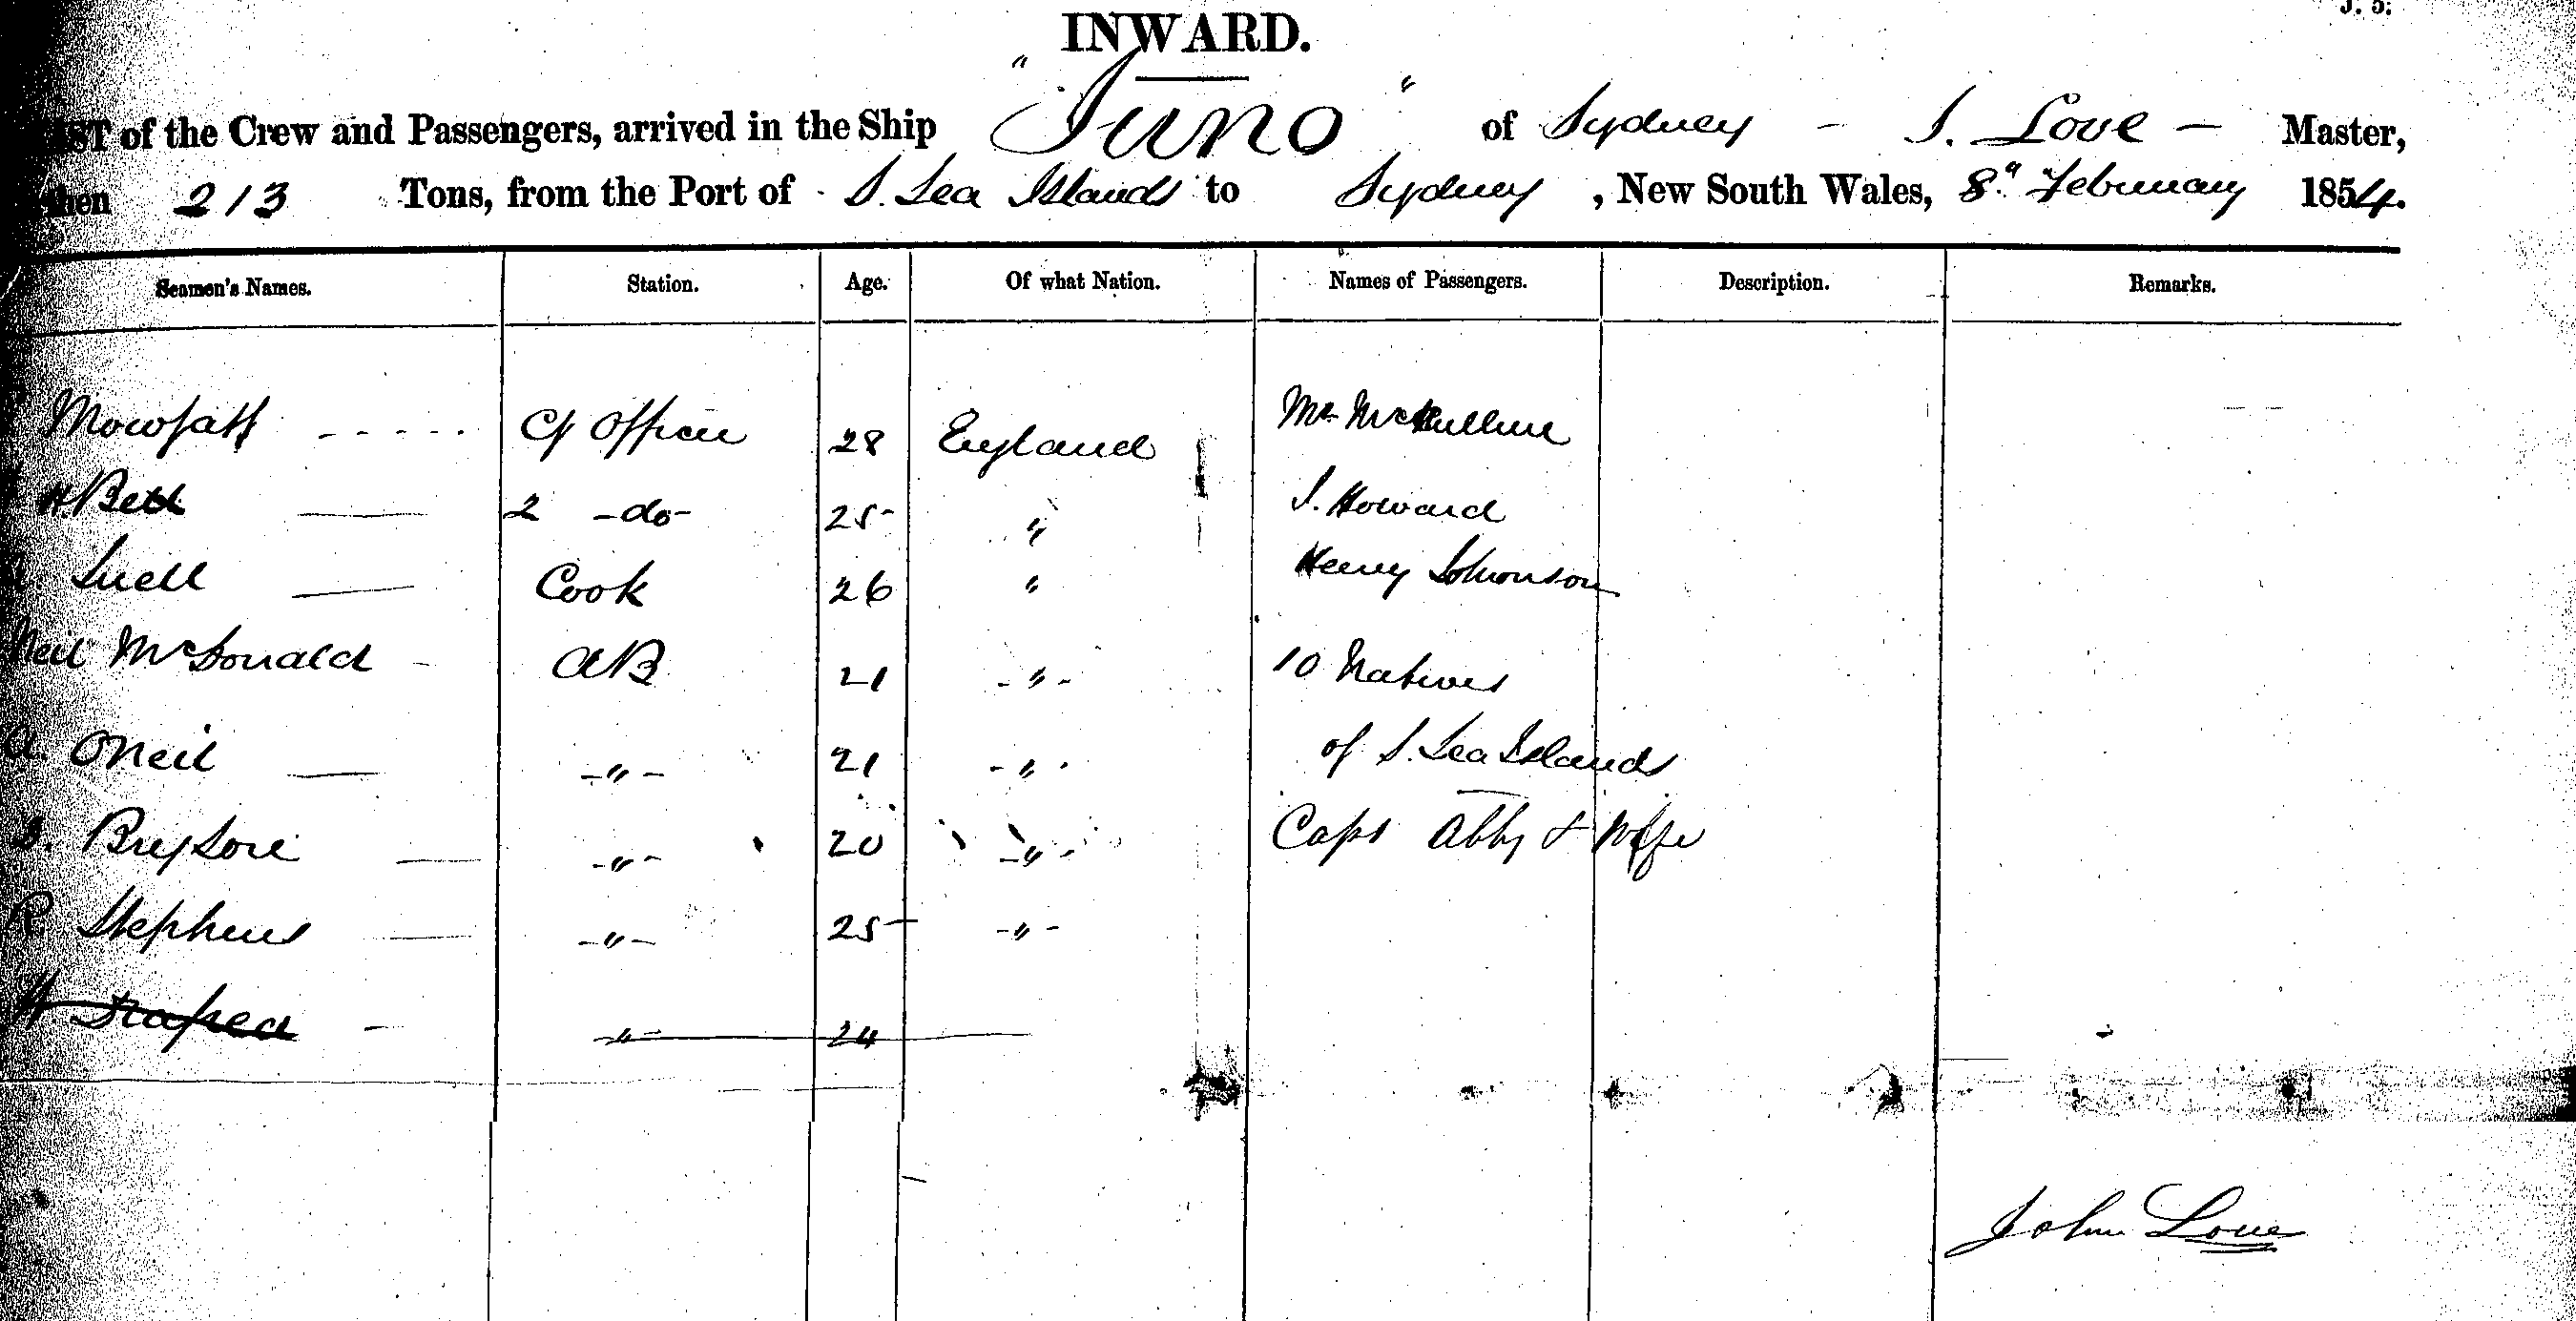 J. 5.
INWARD.
IST of the Crew and Passengers, arrived in the Ship "Juno" of Sydney - J. Love - Master,
then 213 Tons, from the Port of S. Sea Islands to Sydney, New South Wales, 8" February 1854.
Seamen's Names. Station. Age. Of what Nation. Names of Passengers. Description. Remarks.
Mowfatt - - - - - Cf Officer 28 England Mr
H. Bell 2 -do- 25 " J. Howard
Cook 26 " Henry Johnson
Neil McDonald - AB 21 - " - 10 Natives
A. ONeil - " - 21 - " - of S. Sea Islands
- " - 20 - " - Capt Abby & Wife
R Stephens - " - 25 - " -
- " - 24
John Love